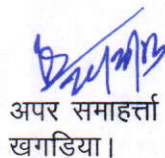 अपर समाहर्त्ता
खगडिया।